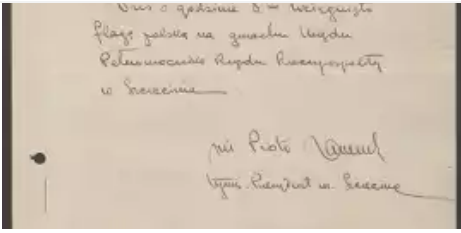 Dziś o godzinie 8— wciągnięto
flagę polską na gmachu Urzędu
Pełnomocnika Rządu Rzeczypospolitej
w Szczecinie
inż Piotr Zaremb
Tymcz. Prezydent m. Szczecina